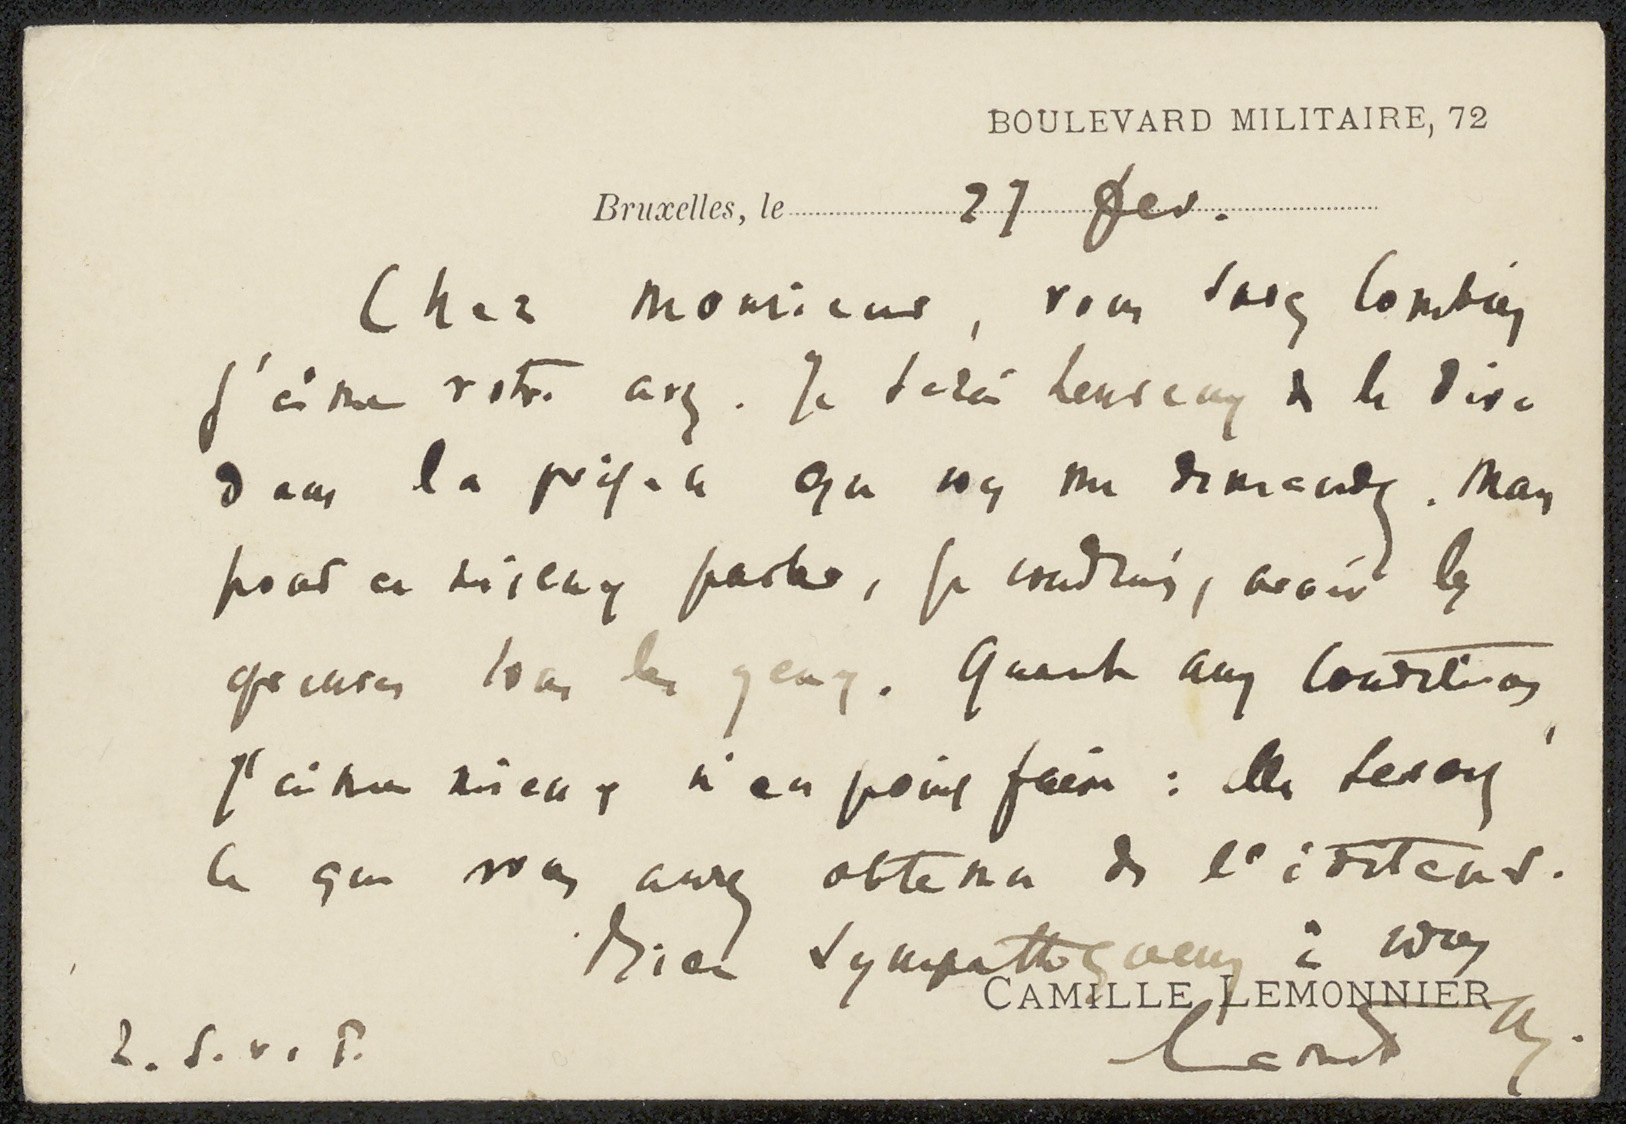 BOULEVARD MILITAIRE, 72
Bruxelles, le 27 fev.
Cher Monsieur, vous savez combien
j'aime votre art. Je serai heureux de le dire
dans la préface que vous me demandez. Mais
pour en mieux parler, je voudrais avoir les
épreuves sous les yeux. Quant aux conditions,
j'aime mieux n'en point faire : elles seront
ce que vous aurez obtenu de l'éditeur.
Bien sympathiquement à vous
CAMILLE LEMONNIER
R. S. v. P.